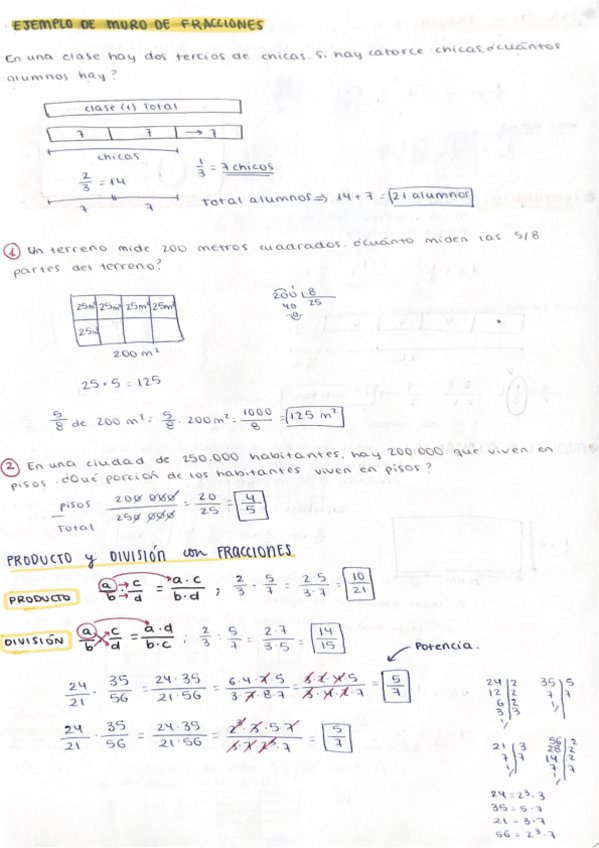 EJEMPLO DE MURO DE FRACCIONES
En una clase hay dos tercios de chicas. Si hay catorce chicas, ¿cuántos
alumnos hay?
clase (1) Total
7 7 → 7
chicas
2/3 = 14
1/3 = 7 chicos
7 7
Total alumnos ⇒ 14 + 7 = 21 alumnos
1 Un terreno mide 200 metros cuadrados. ¿cuánto miden las 5/8
partes del terreno?
25m² 25m² 25m² 25m²
25m²
200 m²
200 8
40 25
0
25 · 5 = 125
5/8 de 200 m² = 5/8 · 200 m² = 1000/8 = 125 m²
2 En una ciudad de 250.000 habitantes, hay 200.000 que viven en
pisos. ¿Qué porción de los habitantes viven en pisos?
pisos/Total 200 000/250 000 = 20/25 = 4/5
PRODUCTO y DIVISIÓN con FRACCIONES
PRODUCTO a/b · c/d = a·c/b·d ; 2/3 · 5/7 = 2·5/3·7 = 10/21
DIVISIÓN a/b : c/d = a·d/b·c ; 2/3 : 5/7 = 2·7/3·5 = 14/15
Potencia.
24/21 · 35/56 = 24·35/21·56 = 6·4·7·5/3·7·8·7 = 5/7
24/21 · 35/56 = 24·35/21·56 = 2³·3·5·7/3·7·2³·7 = 5/7
24 2 35 5
12 2 7 7
6 2 1
3 3
1
21 3 56 2
7 7 28 2
1 14 2
7 7
1
24 = 2³·3
35 = 5·7
21 = 3·7
56 = 2³·7